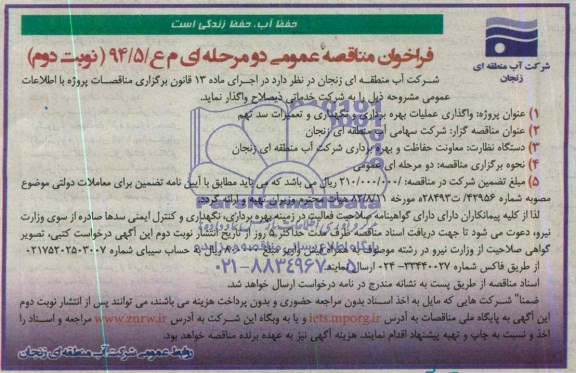 حفظ آب، حفظ زندگی است
شرکت آب منطقه ای
زنجان
فراخوان مناقصه عمومی دو مرحله ای م ع/۹۴/۵ (نوبت دوم)
شرکت آب منطقه ای زنجان در نظر دارد در اجرای ماده ۱۳ قانون برگزاری مناقصات پروژه با اطلاعات
عمومی مشروحه ذیل را به شرکت خدماتی ذیصلاح واگذار نماید.
۱) عنوان پروژه: واگذاری عملیات بهره برداری و نگهداری و تعمیرات سد تهم
۲) عنوان مناقصه گزار: شرکت سهامی آب منطقه ای زنجان
۳) دستگاه نظارت: معاونت حفاظت و بهره برداری شرکت آب منطقه ای زنجان
۴) نحوه برگزاری مناقصه: دو مرحله ای عمومی
۵) مبلغ تضمین شرکت در مناقصه: /۲۱۰/۰۰۰/۰۰۰ ریال می باشد که می باید مطابق با آیین نامه تضمین برای معاملات دولتی موضوع
مصوبه شماره ۴۲۹۵۶/ت۲۸۴۹۳ه مورخه ۸۲/۸/۱۱ هیات محترم وزیران تهیه و ارائه گردد.
لذا از کلیه پیمانکاران دارای گواهینامه صلاحیت فعالیت در زمینه بهره برداری، نگهداری و کنترل ایمنی سدها صادره از سوی وزارت
نیرو، دعوت می شود تا جهت دریافت اسناد مناقصه ظرف مدت حداکثر ۵ روز از تاریخ انتشار نوبت دوم این آگهی درخواست کتبی، تصویر
گواهی صلاحیت از وزارت نیرو در رشته موضوع به همراه فیش واریز مبلغ ریال به حساب سیبای شماره ۰۲۱۷۵۲۰۲۵۰۳۰۰۷
از طریق فاکس شماره ۳۳۴۴۰۰۳۷-۰۲۴ ارسال نمایند.
اسناد مناقصه از طریق پست به نشانه مندرج در نامه درخواست ارسال خواهد شد.
ضمنا" شرکت هایی که مایل به اخذ اسناد بدون مراجعه حضوری و بدون پرداخت هزینه می باشند، می توانند پس از انتشار نوبت دوم
این آگهی به پایگاه ملی مناقصات به آدرس iets.mporg.ir و یا به وبگاه این شرکت به آدرس www.znrw.ir مراجعه و اسناد را
اخذ و نسبت به چاپ و تهیه پیشنهاد اقدام نمایند. هزینه آگهی نیز به عهده برنده مناقصه خواهد بود.
روابط عمومی شرکت آب منطقه ای زنجان
ParsNamadData
پایگاه اطلاع رسانی مناقصه و مزایده
۰۲۱-۸۸۳۴۹۶۷۰-۵